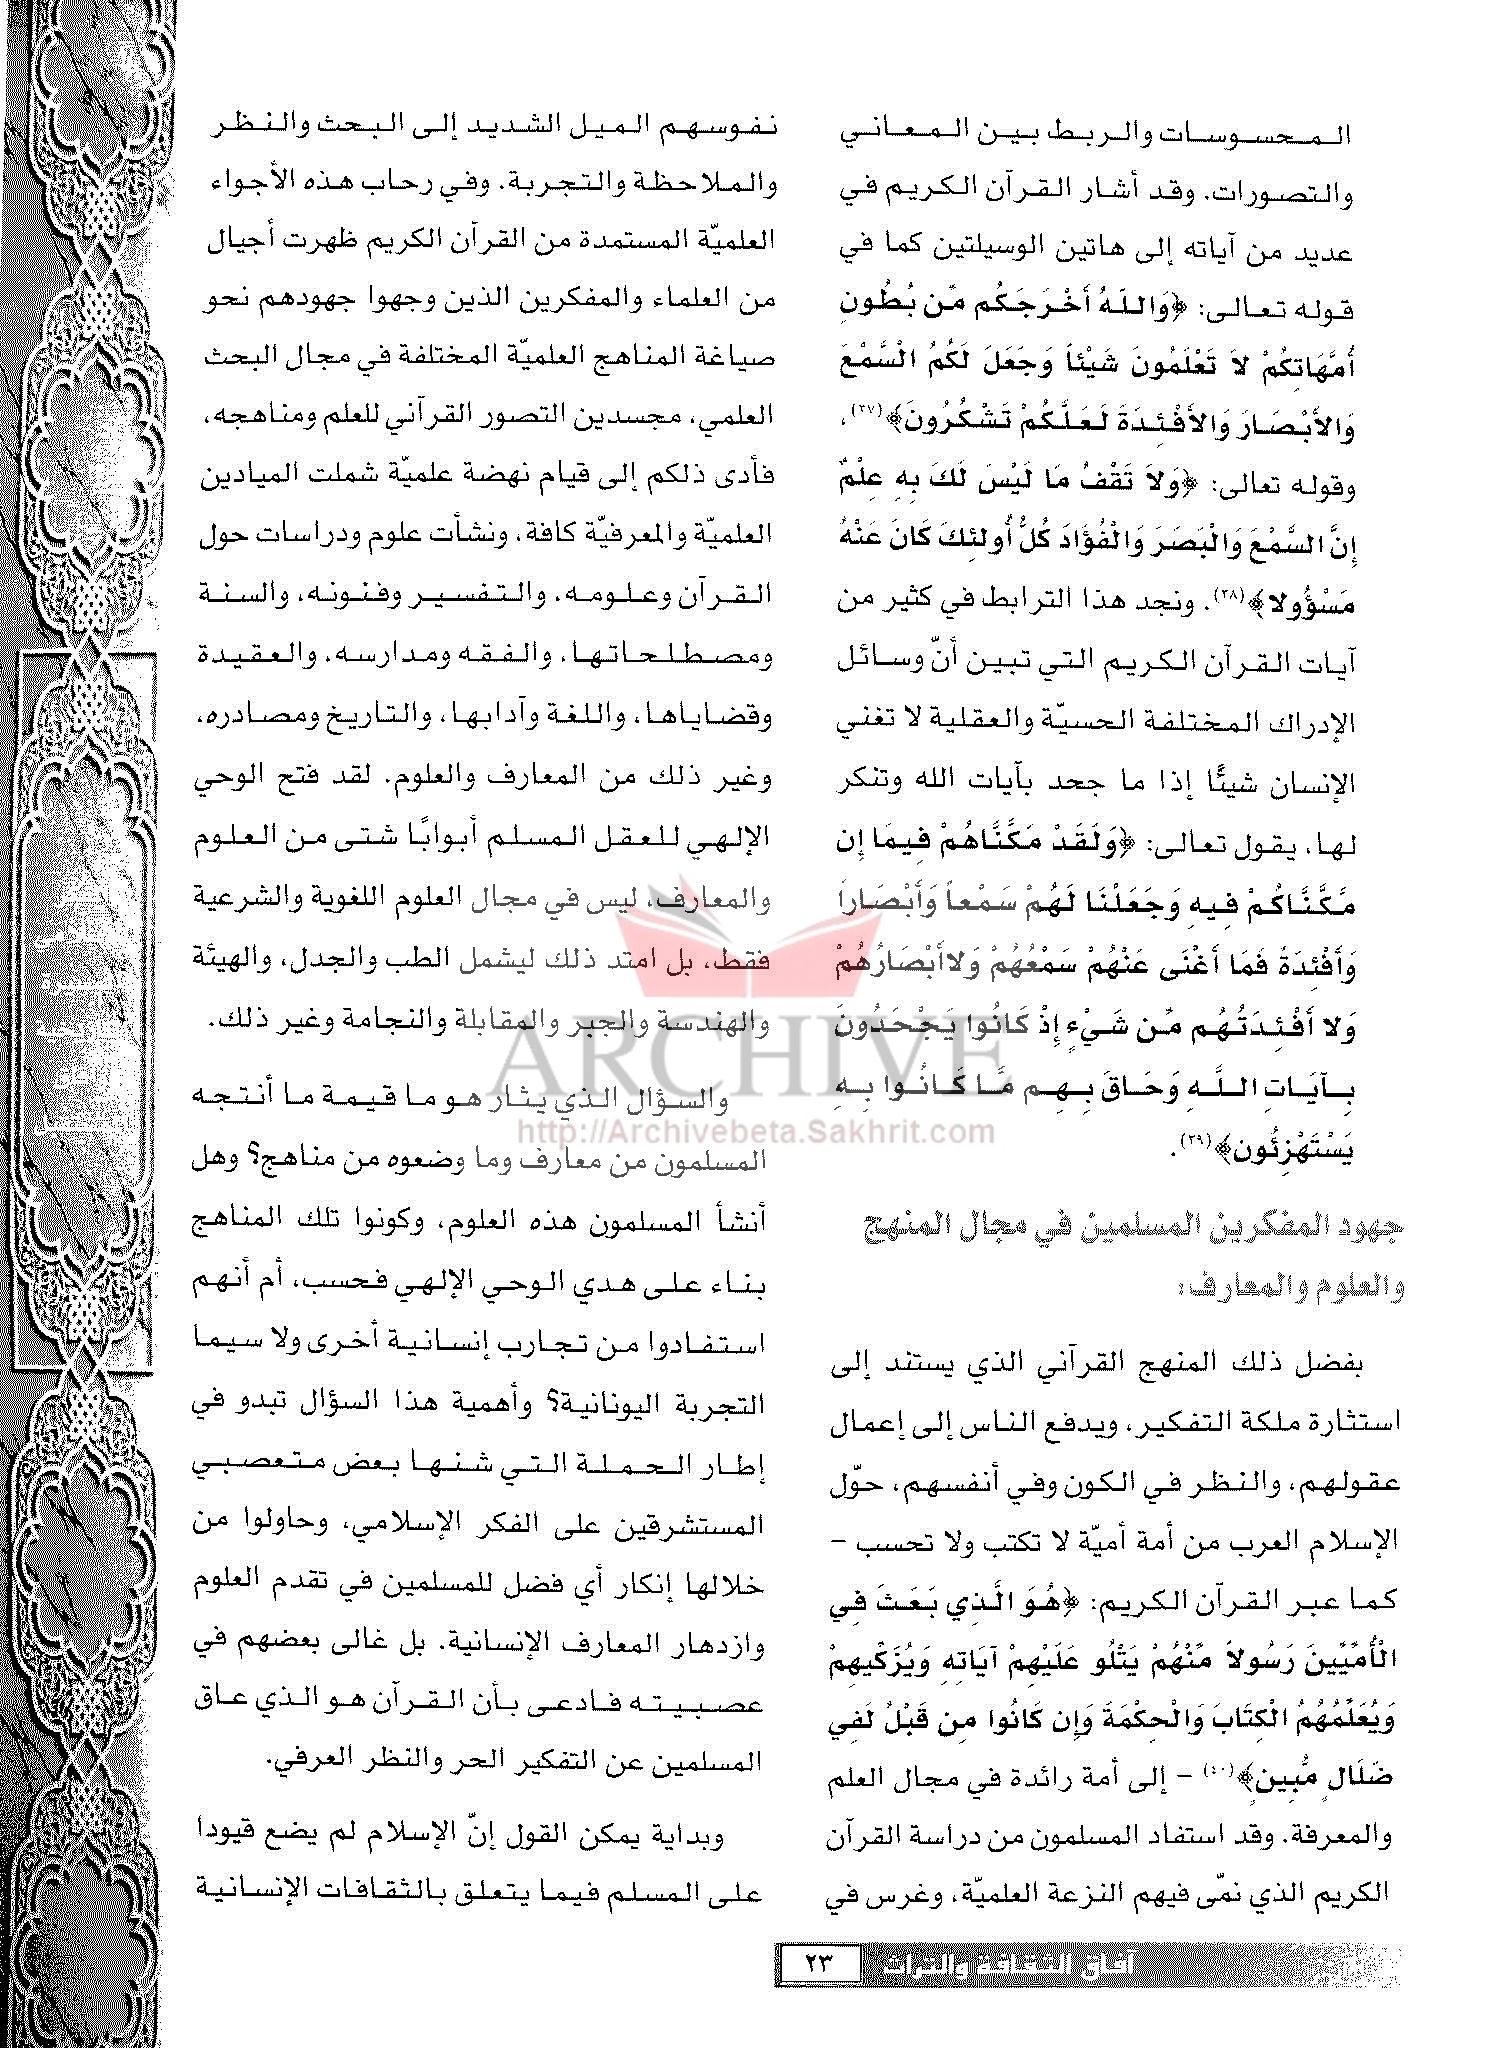 المحسوسات والربط بين المعاني
والتصورات. وقد أشار القرآن الكريم في
عديد من آياته إلى هاتين الوسيلتين كما في
قوله تعالى: ﴿وَاللَهُ أَخْرَجَكُم مِّن بُطُونِ
أُمَّهَاتِكُمْ لاَ تَعْلَمُونَ شَيْئاً وَجَعَلَ لَكُمُ الْسَّمْعَ
وَالأَبْصَارَ وَالأَفْئِدَةَ لَعَلَّكُمْ تَشْكُرُونَ﴾(٣٧)،
وقوله تعالى: ﴿وَلاَ تَقْفُ مَا لَيْسَ لَكَ بِهِ عِلْمٌ
إِنَّ السَّمْعَ وَالْبَصَرَ وَالْفُؤَادَ كُلُّ أُولئِكَ كَانَ عَنْهُ
مَسْؤُولا﴾(٣٨). ونجد هذا الترابط في كثير من
آيات القرآن الكريم التي تبين أنّ وسائل
الإدراك المختلفة الحسيّة والعقلية لا تغني
الإنسان شيئًا إذا ما جحد بآيات الله وتنكر
لها، يقول تعالى: ﴿وَلَقَدْ مَكَّنَّاهُمْ فِيمَا إِن
مَّكَّنَّاكُمْ فِيهِ وَجَعَلْنَا لَهُمْ سَمْعاً وَأَبْصَاراً
وَأَفْئِدَةً فَمَا أَغْنَى عَنْهُمْ سَمْعُهُمْ وَلاأَبْصَارُهُمْ
وَلا أَفْئِدَتُهُم مِّن شَيْءٍ إِذْ كَانُوا يَجْحَدُونَ
بِآيَاتِ اللَّهِ وَحَاقَ بِهِم مَّا كَانُوا بِهِ
يَسْتَهْزِئُون﴾(٣٩).
جهود المفكرين المسلمين في مجال المنهج
والعلوم والمعارف:
بفضل ذلك المنهج القرآني الذي يستند إلى
استثارة ملكة التفكير، ويدفع الناس إلى إعمال
عقولهم، والنظر في الكون وفي أنفسهم، حوّل
الإسلام العرب من أمة أميّة لا تكتب ولا تحسب –
كما عبر القرآن الكريم: ﴿هُوَ الَّذِي بَعَثَ فِي
الْأُمِّيِّينَ رَسُولاً مِّنْهُمْ يَتْلُو عَلَيْهِمْ آيَاتِهِ وَيُزَكِّيهِمْ
وَيُعَلِّمُهُمُ الْكِتَابَ وَالْحِكْمَةَ وَإِن كَانُوا مِن قَبْلُ لَفِي
ضَلَالٍ مُّبِينٍ﴾(٤٠) – إلى أمة رائدة في مجال العلم
والمعرفة. وقد استفاد المسلمون من دراسة القرآن
الكريم الذي نمّى فيهم النزعة العلميّة، وغرس في
نفوسهم الميل الشديد إلى البحث والنظر
والملاحظة والتجربة. وفي رحاب هذه الأجواء
العلميّة المستمدة من القرآن الكريم ظهرت أجيال
من العلماء والمفكرين الذين وجهوا جهودهم نحو
صياغة المناهج العلميّة المختلفة في مجال البحث
العلمي، مجسدين التصور القرآني للعلم ومناهجه،
فأدى ذلكم إلى قيام نهضة علميّة شملت الميادين
العلميّة والمعرفيّة كافة، ونشأت علوم ودراسات حول
القرآن وعلومه، والتفسير وفنونه، والسنة
ومصطلحاتها، والفقه ومدارسه، والعقيدة
وقضاياها، واللغة وآدابها، والتاريخ ومصادره،
وغير ذلك من المعارف والعلوم. لقد فتح الوحي
الإلهي للعقل المسلم أبوابًا شتى من العلوم
والمعارف، ليس في مجال العلوم اللغوية والشرعية
فقط، بل امتد ذلك ليشمل الطب والجدل، والهيئة
والهندسة والجبر والمقابلة والنجامة وغير ذلك.
والسؤال الذي يثار هو ما قيمة ما أنتجه
المسلمون من معارف وما وضعوه من مناهج؟ وهل
أنشأ المسلمون هذه العلوم، وكونوا تلك المناهج
بناء على هدي الوحي الإلهي فحسب، أم أنهم
استفادوا من تجارب إنسانية أخرى ولا سيما
التجربة اليونانية؟ وأهمية هذا السؤال تبدو في
إطار الحملة التي شنها بعض متعصبي
المستشرقين على الفكر الإسلامي، وحاولوا من
خلالها إنكار أي فضل للمسلمين في تقدم العلوم
وازدهار المعارف الإنسانية. بل غالى بعضهم في
عصبيته فادعى بأن القرآن هو الذي عاق
المسلمين عن التفكير الحر والنظر العرفي.
وبداية يمكن القول إنّ الإسلام لم يضع قيودا
على المسلم فيما يتعلق بالثقافات الإنسانية
ARCHIVE
http://Archivebeta.Sakhrit.com
آفاق الثقافة والتراث ٢٣